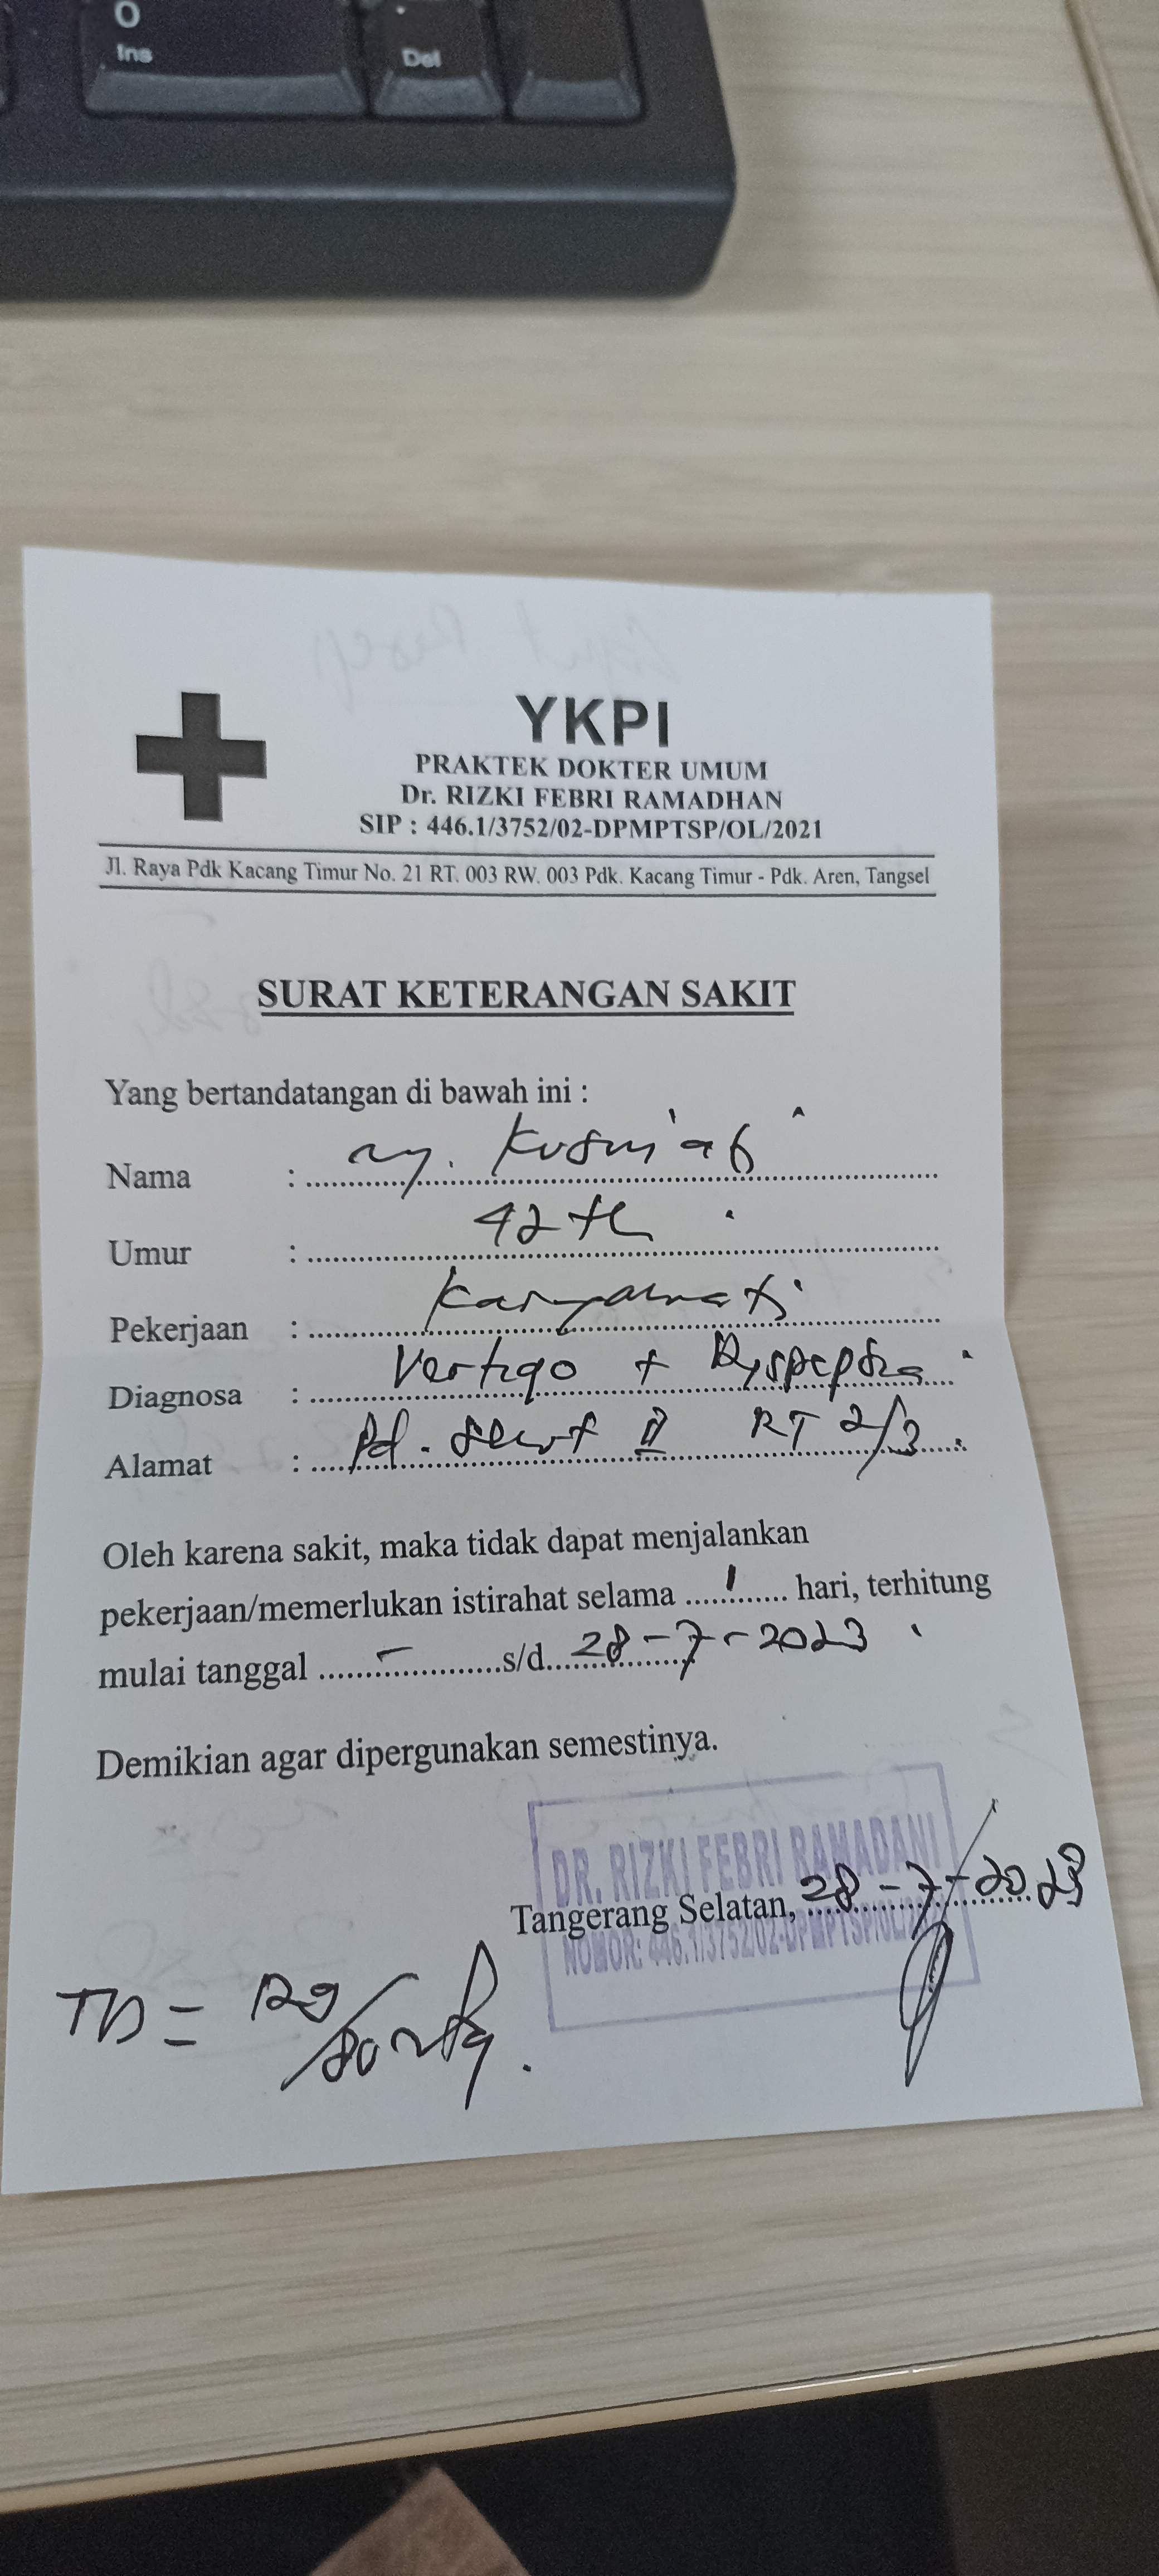 0
Ins
.
Del
YKPI
PRAKTEK DOKTER UMUM
Dr. RIZKI FEBRI RAMADHAN
SIP : 446.1/3752/02-DPMPTSP/OL/2021
Jl. Raya Pdk Kacang Timur No. 21 RT. 003 RW. 003 Pdk. Kacang Timur - Pdk. Aren, Tangsel
SURAT KETERANGAN SAKIT
Yang bertandatangan di bawah ini :
Nama : Ny.
Umur : 42 th
Pekerjaan : Karyawati
Diagnosa : Vertigo + Dyspepsia
Alamat : Pd. II RT 2/3
Oleh karena sakit, maka tidak dapat menjalankan
pekerjaan/memerlukan istirahat selama 1 hari, terhitung
mulai tanggal - s/d. 28-7-2023
Demikian agar dipergunakan semestinya.
DR. RIZKI FEBRI RAMADANI
Tangerang Selatan, 28-7-2023
NOMOR: 446.1/3752/02-DPMPTSP/OL/
TD =